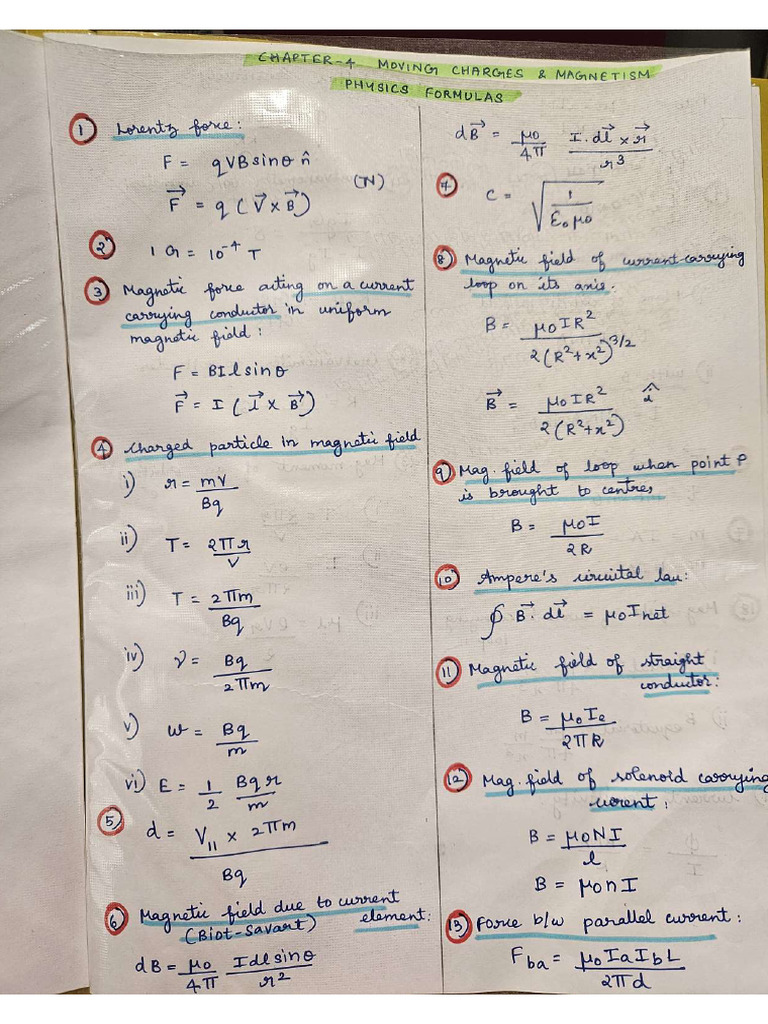 CHAPTER-4 MOVING CHARGES & MAGNETISM
PHYSICS FORMULAS
1 Lorentz force:
F = qVBsinθ n̂
F⃗ = q (V⃗ x B⃗) (N)
2 1 G = 10⁻⁴ T
3 Magnetic force acting on a current
carrying conductor in uniform
magnetic field:
F = BIlsinθ
F⃗ = I (l⃗ x B⃗)
4 Charged particle in magnetic field
i) r = mv/Bq
ii) T = 2πr/V
iii) T = 2πm/Bq
iv) ν = Bq/2πm
v) w = Bq/m
vi) E = 1/2 Bqr/m
5 d = V₁₁ x 2πm/Bq
6 Magnetic field due to current
(Biot-Savart) element:
dB = μ₀/4π Idlsinθ/r²
dB⃗ = μ₀/4π I.dl⃗ x r⃗/r³
7 C = √1/ε₀μ₀
8 Magnetic field of current-carrying
loop on its axis.
B = μ₀IR²/2(R²+x²)^3/2
B⃗ = μ₀IR²/2(R²+x²) î
9 Mag. field of loop when point P
is brought to centre,
B = μ₀I/2R
10 Ampere's circuital law:
∮ B⃗. dl⃗ = μ₀Inet
11 Magnetic field of straight
conductor:
B = μ₀Ie/2πR
12 Mag. field of solenoid carrying
current:
B = μ₀NI/l
B = μ₀nI
13 Force b/w parallel current:
Fba = μ₀IaIbL/2πd